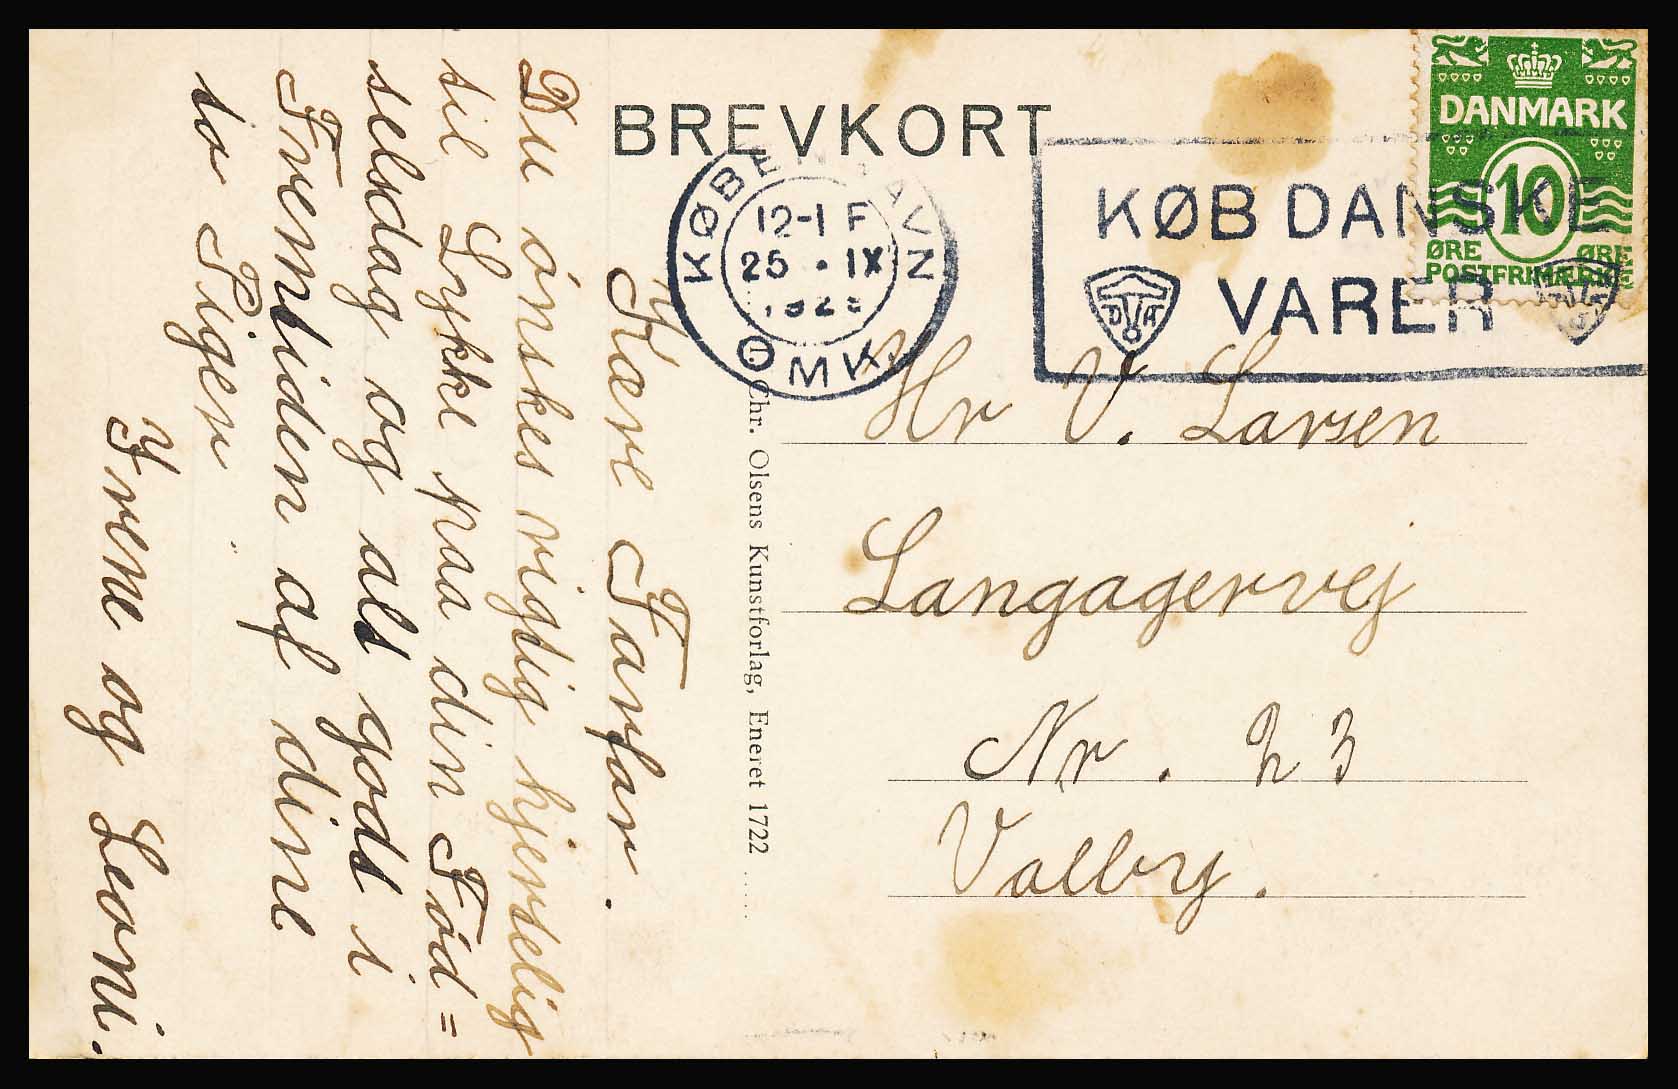 BREVKORT
DANMARK
10
ØRE ØRE
POSTFRIMÆRKE
KØBENHAVN
12-1 F
25 . IX
OMK. 1.
KØB DANSKE
VARER
DVA
Kære Farfar.
Du ónskes rigtig hjertelig
til Lykke paa din Fød=
selsdag og alt godt i
Fremtiden af dine
to Piger
Yrene og Leoni.
Chr. Olsens Kunstforlag, Eneret 1722
Hr V. Larsen
Langagervej
Nr. 23
Valby.